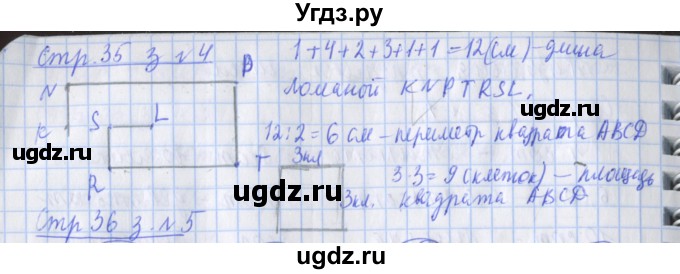 Угдз.ру
Стр. 35 з. №4
1+4+2+3+1+1=12(см)-длина
N P
ломаной KNPTRSL.
K S L
ugdz.ru
12:2=6 см - периметр квадрата ABCD
ugdz.ru
3кл
T
R
ugdz.ru
3·3=9 (клеток) - площадь
3кл. квадрата ABCD
Стр. 36 з. №5
ugdz.ru